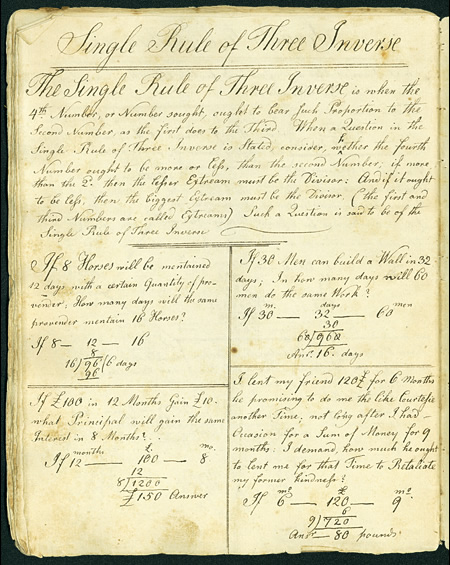 Single Rule of Three Inverse
The Single Rule of Three Inverse is when the
4th Number, or Number sought, ought to bear such Proportion to the
Second Number, as the first does to the Third When a Question in the
Single Rule of Three Inverse is Stated, consider, wether the fourth
Number ought to be more or less, than the second Number; if more
than the 2d. then the lesser Extream must be the Divisor: And if it ought
to be less, then the biggest Extream must be the Divisor. (the first and
third Numbers are called Extreams) Such a Question is said to be of the
Single Rule of Three Inverse
If 8 Horses will be mentained
12 days with a certain Quantity of pro-
vender: How many days will the same
provender mentain 16 Horses?
If 8 — 12 — 16
8
16)96(6 days
96
If £100 in 12 Months Gain £10.
what Principal will gain the same
Interest in 8 Months?
months £. mo.
If 12 — 100 — 8
12
8)1200
£150 Answer
If 30 Men can build a Wall in 32
days; In how many days will 60
men do the same Work?
m. days men
If 30 — 32 — 60
30
60)960
Ansr. 16. days
I lent my friend 120£ for 6 Months
he promising to do me the like Curtesie
another Time. not long after I had
Occasion for a Sum of Money for 9
months: I demand, how much he ought
to lent me for that Time to Retaliate
my former kindness?
mo £ mo.
If 6 — 120 — 9
6
9)720
Ansr — 80 pounds.